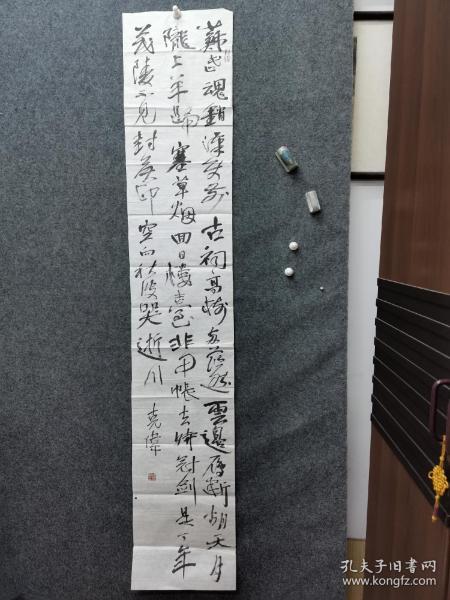 蘇武魂銷漢使前古祠高樹兩茫然雲邊雁斷胡天月
隴上羊歸塞草烟回日樓臺非甲帳去時冠劍是丁年
茂陵不見封侯印空向秋波哭逝川
克偉
孔夫子旧书网
www.kongfz.com